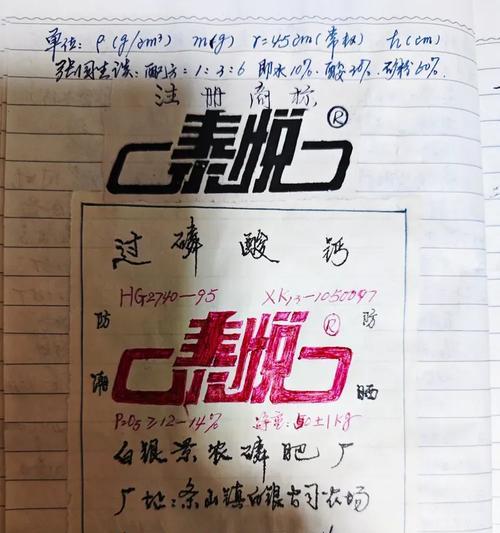 单位: ρ(g/cm³) m(g) r=45cm(常数) h(cm)
张国生谈:配方:1:3:6 即水10%.酸30%.矿粉60%.
注册商标
泰悦®
过磷酸钙
HG2740-95 XK13-1050097
防潮
泰悦®
防晒
P₂O₅≥12-14% 净重:50±1kg
白银景农磷肥厂
厂地:条山镇白银公司农场